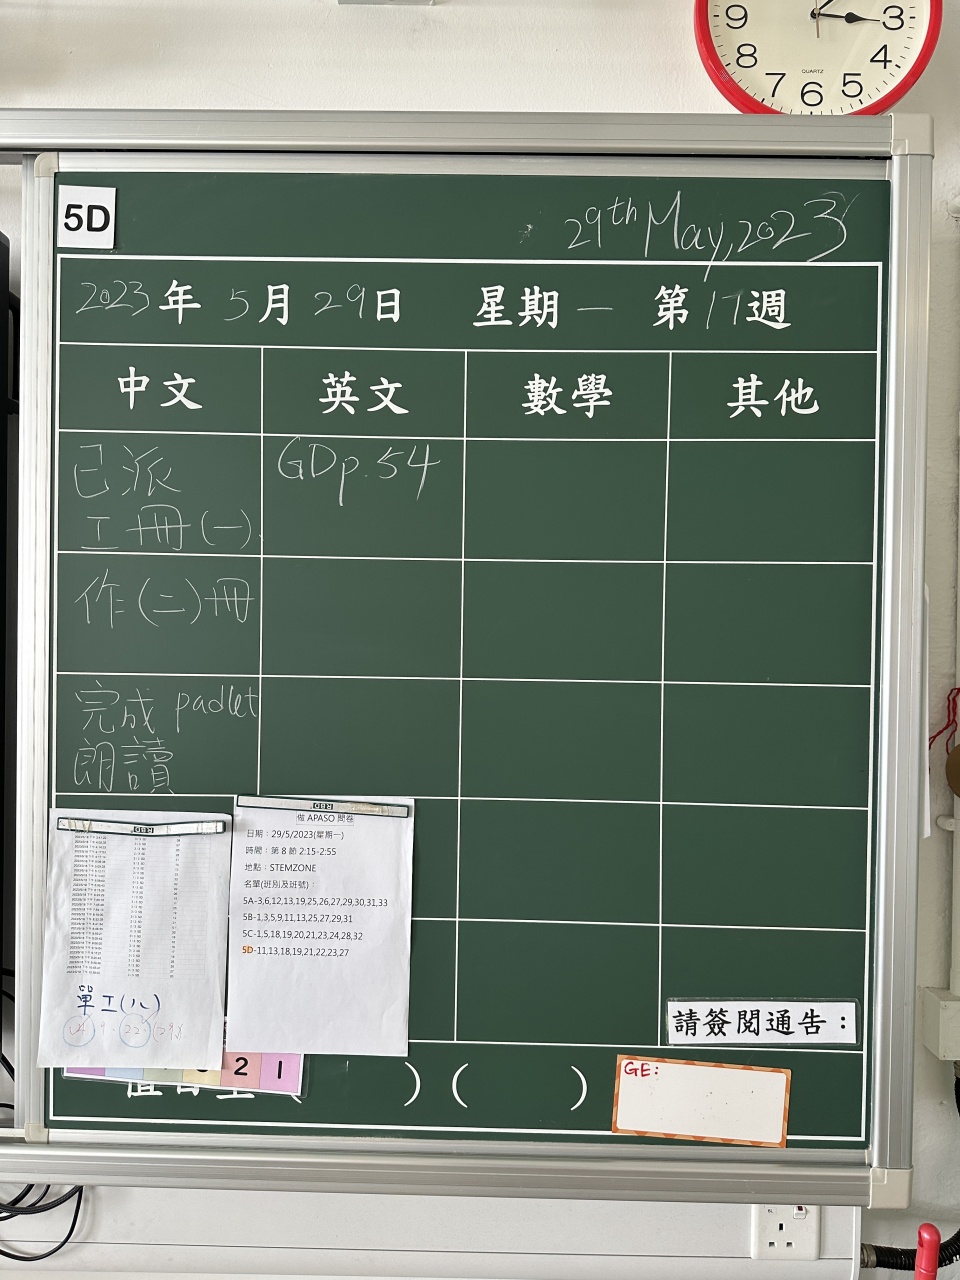 9
3
8
4
QUARTZ
7
6
5
5D
29th May, 2023
2023年 5月 29日 星期一 第17週
中文 英文 數學 其他
已派 GD p.54
工冊(一)
作(二)冊
完成 padlet
朗讀
做 APASO 問卷
日期：29/5/2023(星期一)
時間：第 8 節 2:15-2:55
地點：STEMZONE
名單(班別及班號)：
5A-3,6,12,13,19,25,26,27,29,30,31,33
5B-1,3,5,9,11,13,25,27,29,31
5C-1,5,18,19,20,21,23,24,28,32
5D-11,13,18,19,21,22,23,27
單工(八)
請簽閱通告：
2 1
( ) ( )
GE: